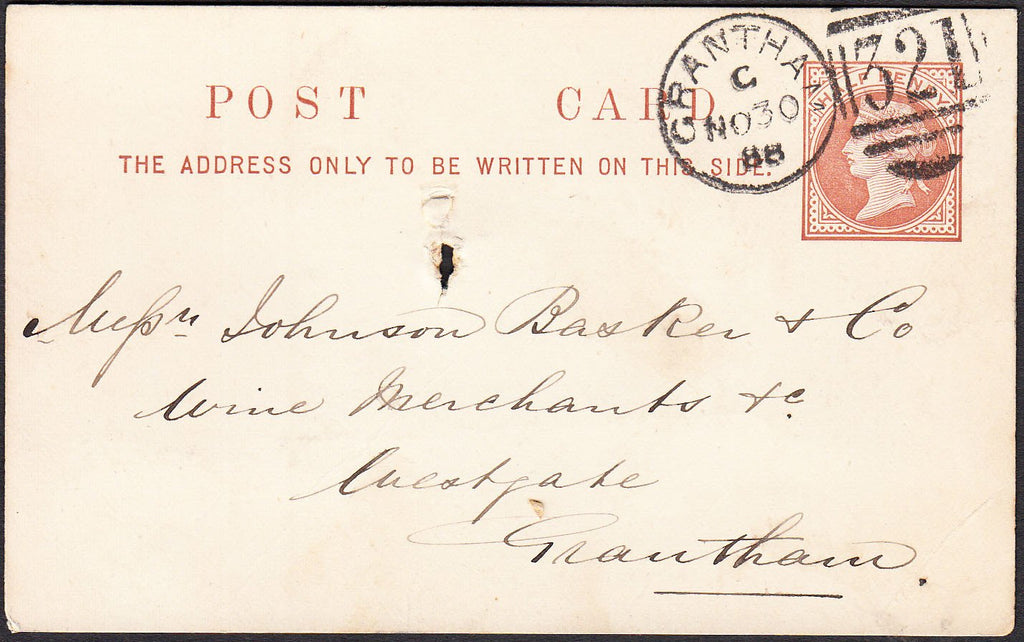 POST CARD
THE ADDRESS ONLY TO BE WRITTEN ON THIS SIDE.
GRANTHAM
C
NO30
88
321
HALFPENNY
Messrs Johnson Basker & Co
Wine Merchants &c.
Westgate
Grantham.